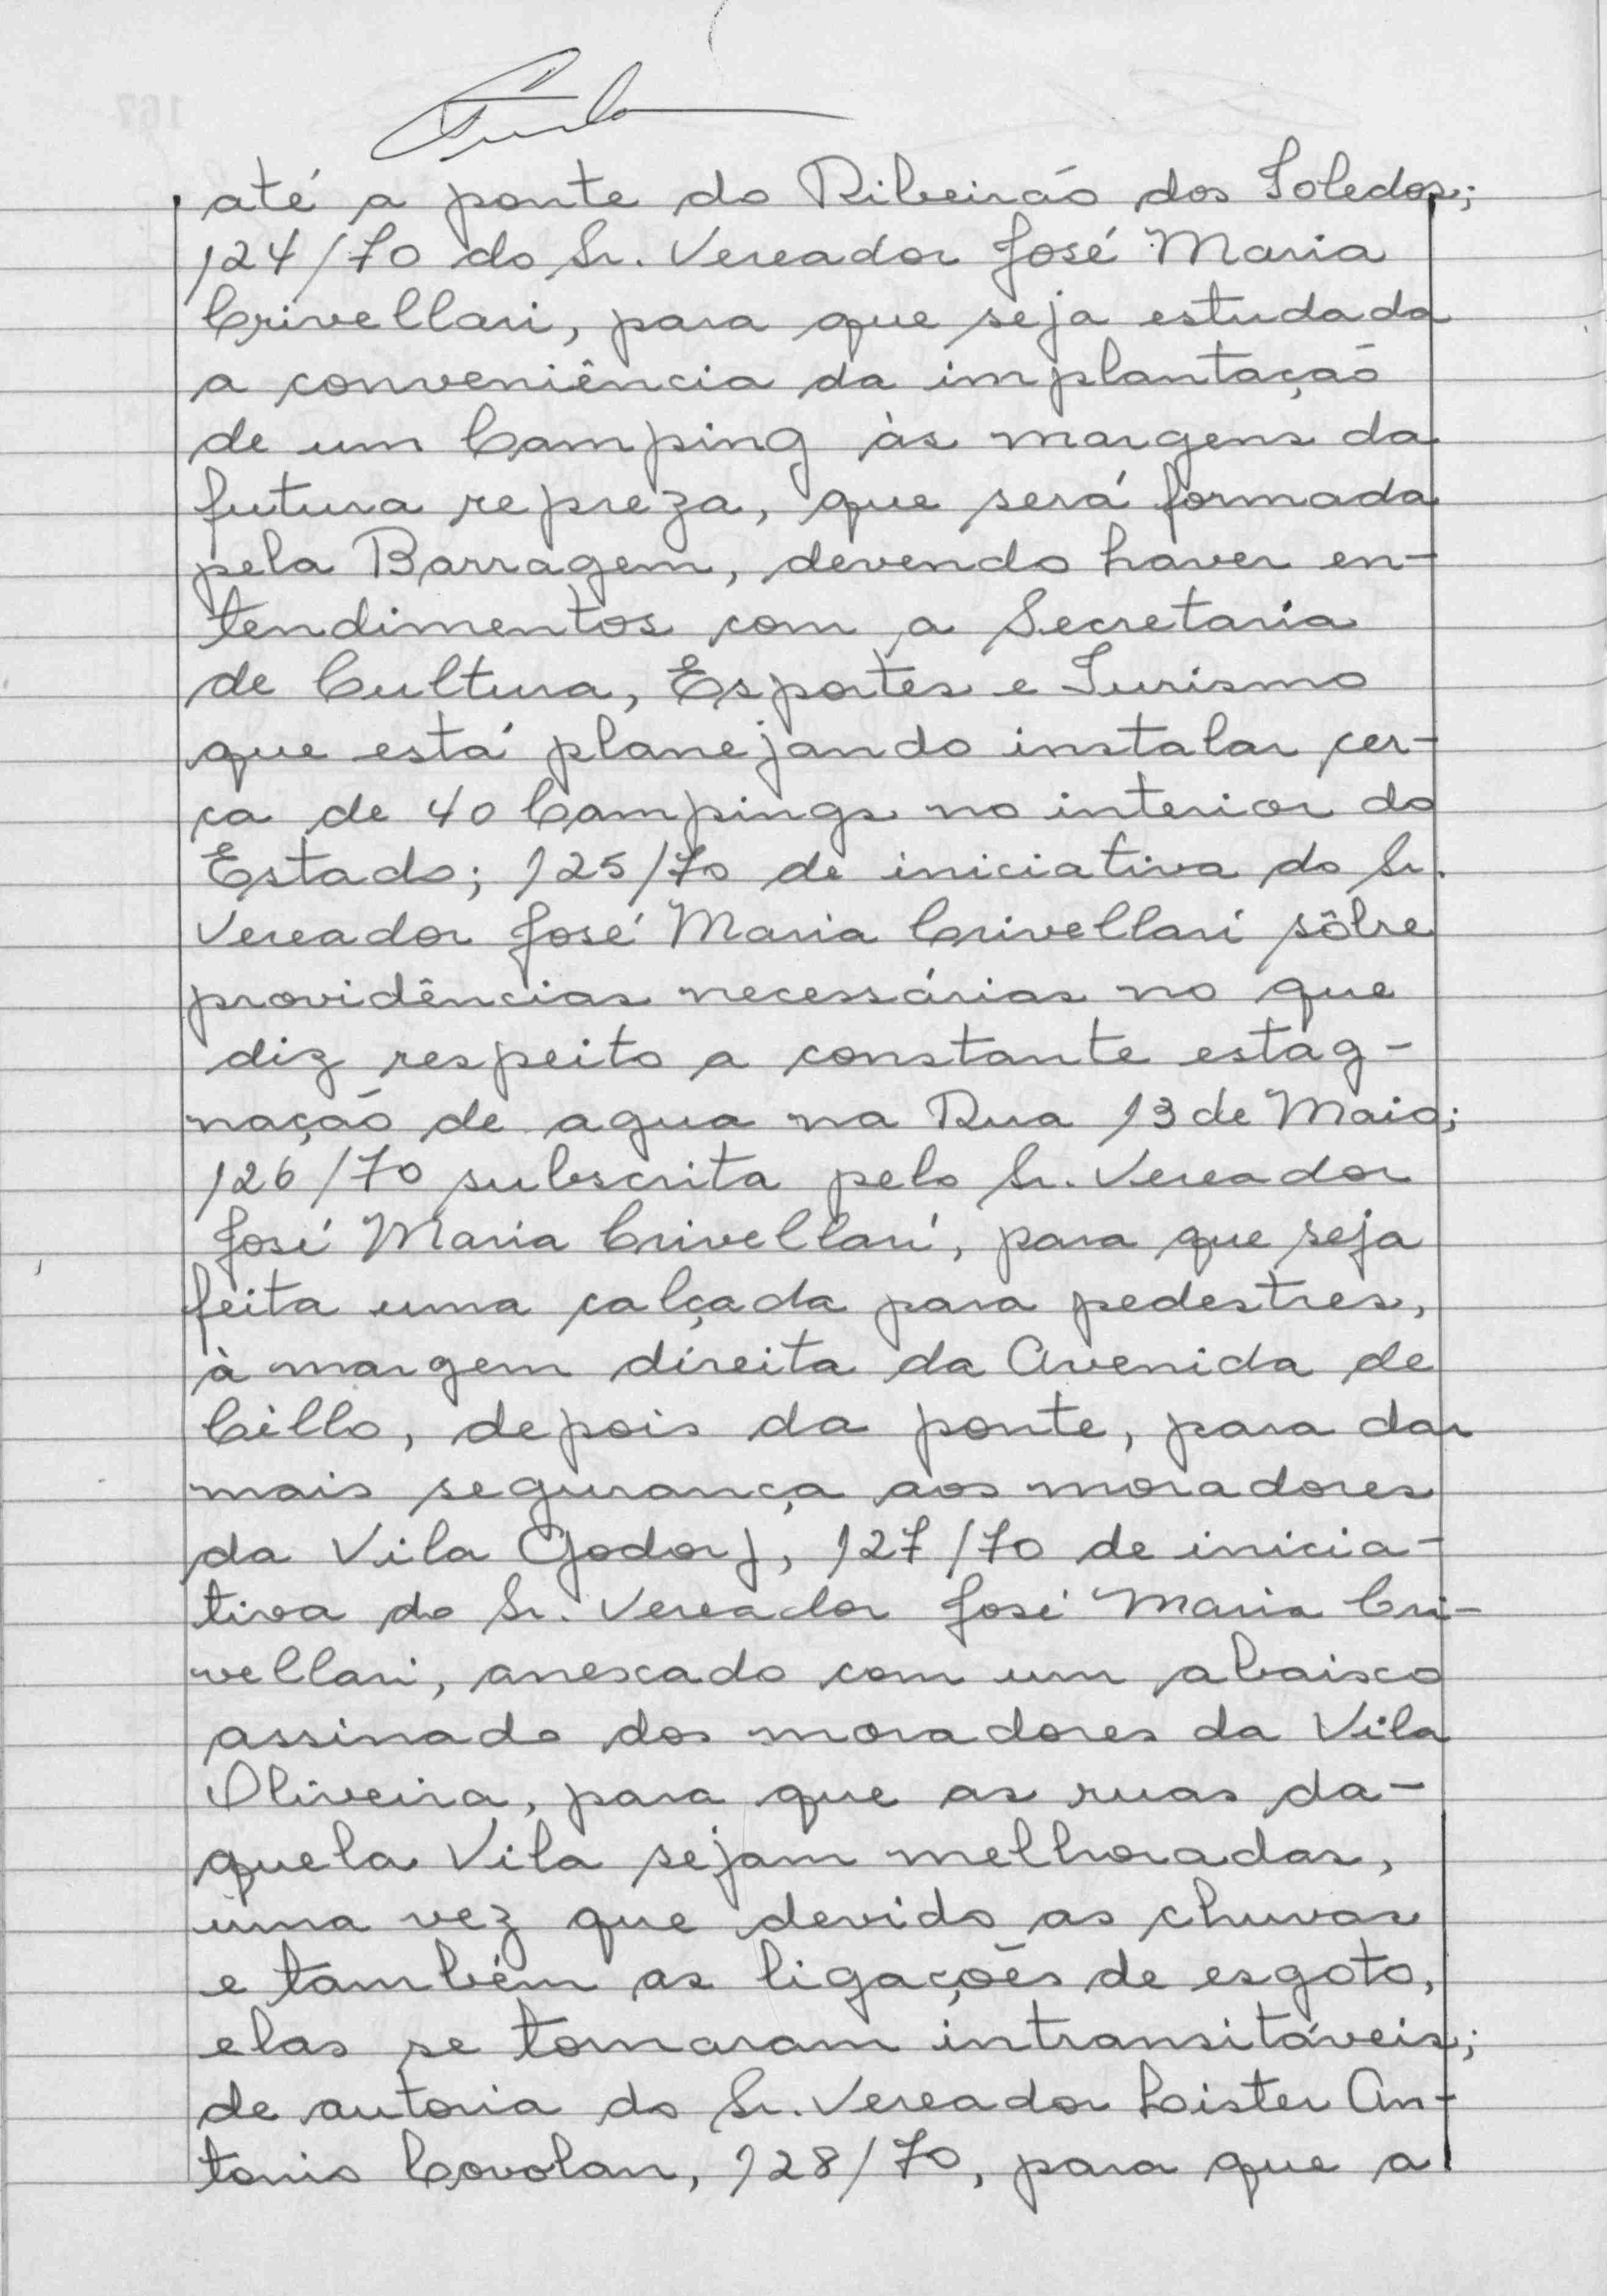 até a ponte do Ribeirão dos Toledos;
124/70 do Sr. Vereador José Maria
Crivellari, para que seja estudada
a conveniência da implantação
de um Camping às margens da
futura repreza, que será formada
pela Barragem, devendo haver en-
tendimentos com a Secretaria
de Cultura, Esportes e Turismo
que está planejando instalar cer-
ca de 40 Campings no interior do
Estado; 125/70 de iniciativa do Sr.
Vereador José Maria Crivellari sôbre
providências necessárias no que
diz respeito a constante estag-
nação de agua na Rua 13 de Maio;
126/70 subscrita pelo Sr. Vereador
José Maria Crivellari, para que seja
feita uma calçada para pedestres,
à margem direita da Avenida de
Cillo, depois da ponte, para dar
mais segurança aos moradores
da Vila Godoy, 127/70 de inicia-
tiva do Sr. Vereador José Maria Cri-
vellari, anexado com um abaixo
assinado dos moradores da Vila
Oliveira, para que as ruas da-
quela Vila sejam melhoradas,
uma vez que devido as chuvas
e também as ligações de esgoto,
elas se tornaram intransitáveis;
de autoria do Sr. Vereador Lister An-
tonio Covolan, 128/70, para que a